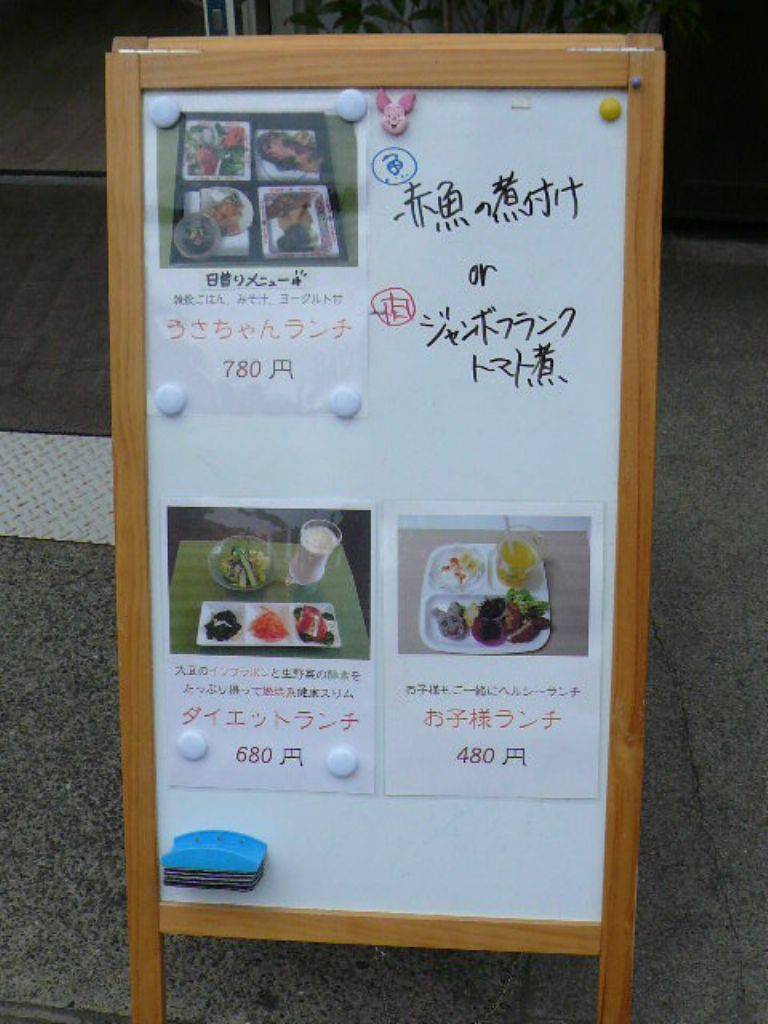 日替りメニュー
雑穀ごはん、みそ汁、ヨーグルト付
うさちゃんランチ
780 円
魚
赤魚の煮付け
or
肉
ジャンボフランク
トマト煮
大豆のイソフラボンと生野菜の酵素を
たっぷり摂って燃焼系健康スリム
ダイエットランチ
680 円
お子様もご一緒にヘルシーランチ
お子様ランチ
480 円